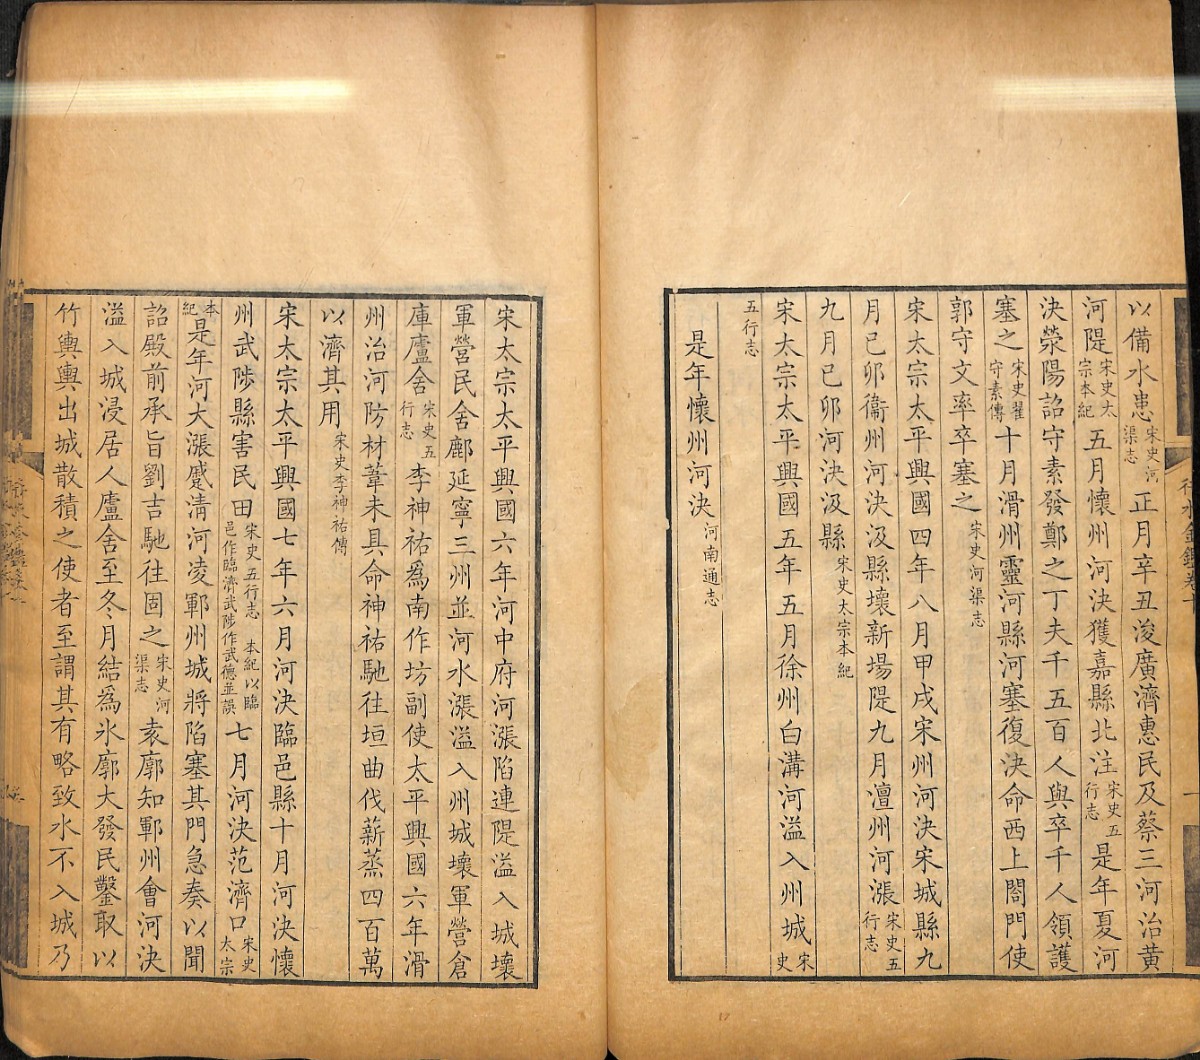 以備水患宋史河渠志正月辛丑浚廣濟惠民及蔡三河治黃
河隄宋史太宗本紀五月懷州河決獲嘉縣北注宋史五行志是年夏河
決滎陽詔守素發鄭之丁夫千五百人與卒千人領護
塞之宋史翟守素傳十月滑州靈河縣河塞復決命西上閤門使
郭守文率卒塞之宋史河渠志
宋太宗太平興國四年八月甲戌宋州河決宋城縣九
月己卯衞州河決汲縣壞新場隄九月澶州河漲宋史五行志
九月己卯河決汲縣宋史太宗本紀
宋太宗太平興國五年五月徐州白溝河溢入州城宋史
五行志
是年懷州河決河南通志
行水金鑑卷十
宋太宗太平興國六年河中府河漲陷連隄溢入城壞
軍營民舍鄜延寧三州並河水漲溢入州城壞軍營倉
庫廬舍宋史五行志李神祐爲南作坊副使太平興國六年滑
州治河防材葦未具命神祐馳往垣曲伐薪蒸四百萬
以濟其用宋史李神祐傳
宋太宗太平興國七年六月河決臨邑縣十月河決懷
州武陟縣害民田宋史五行志 本紀以臨邑作臨濟武陟作武德並誤七月河決范濟口宋史太宗
本紀是年河大漲蹙清河凌鄆州城將陷塞其門急奏以聞
詔殿前承旨劉吉馳往固之宋史河渠志袁廓知鄆州會河決
溢入城浸居人廬舍至冬月結爲氷廓大發民鑿取以
竹輿輿出城散積之使者至謂其有略致水不入城乃